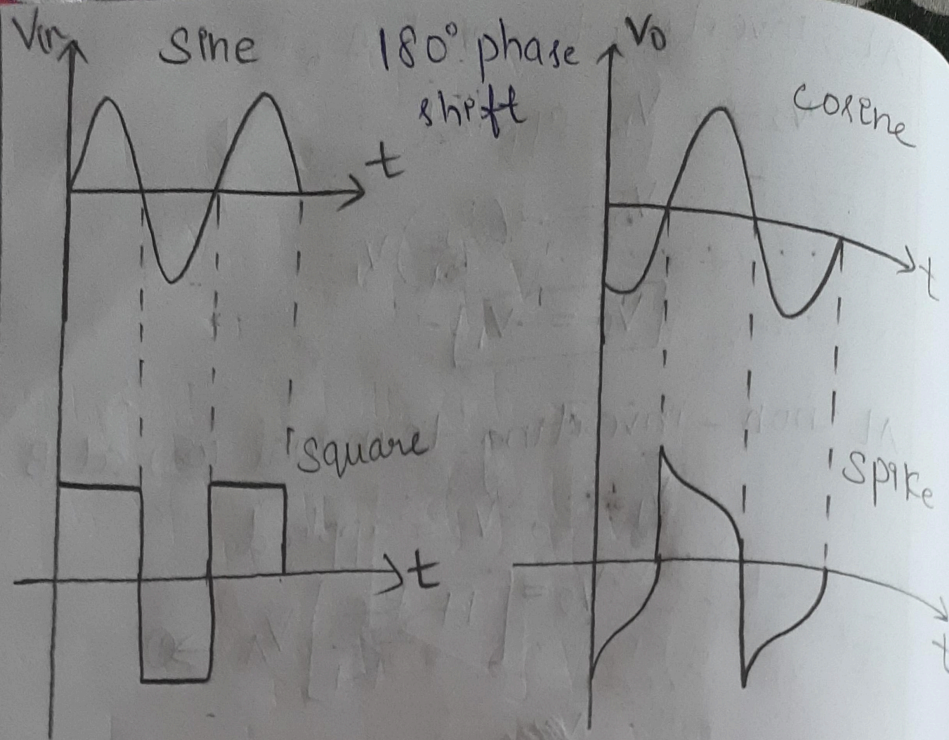 Vin
Sine
180° phase
shift
Vo
Cosine
t
t
Square
Spike
t
t